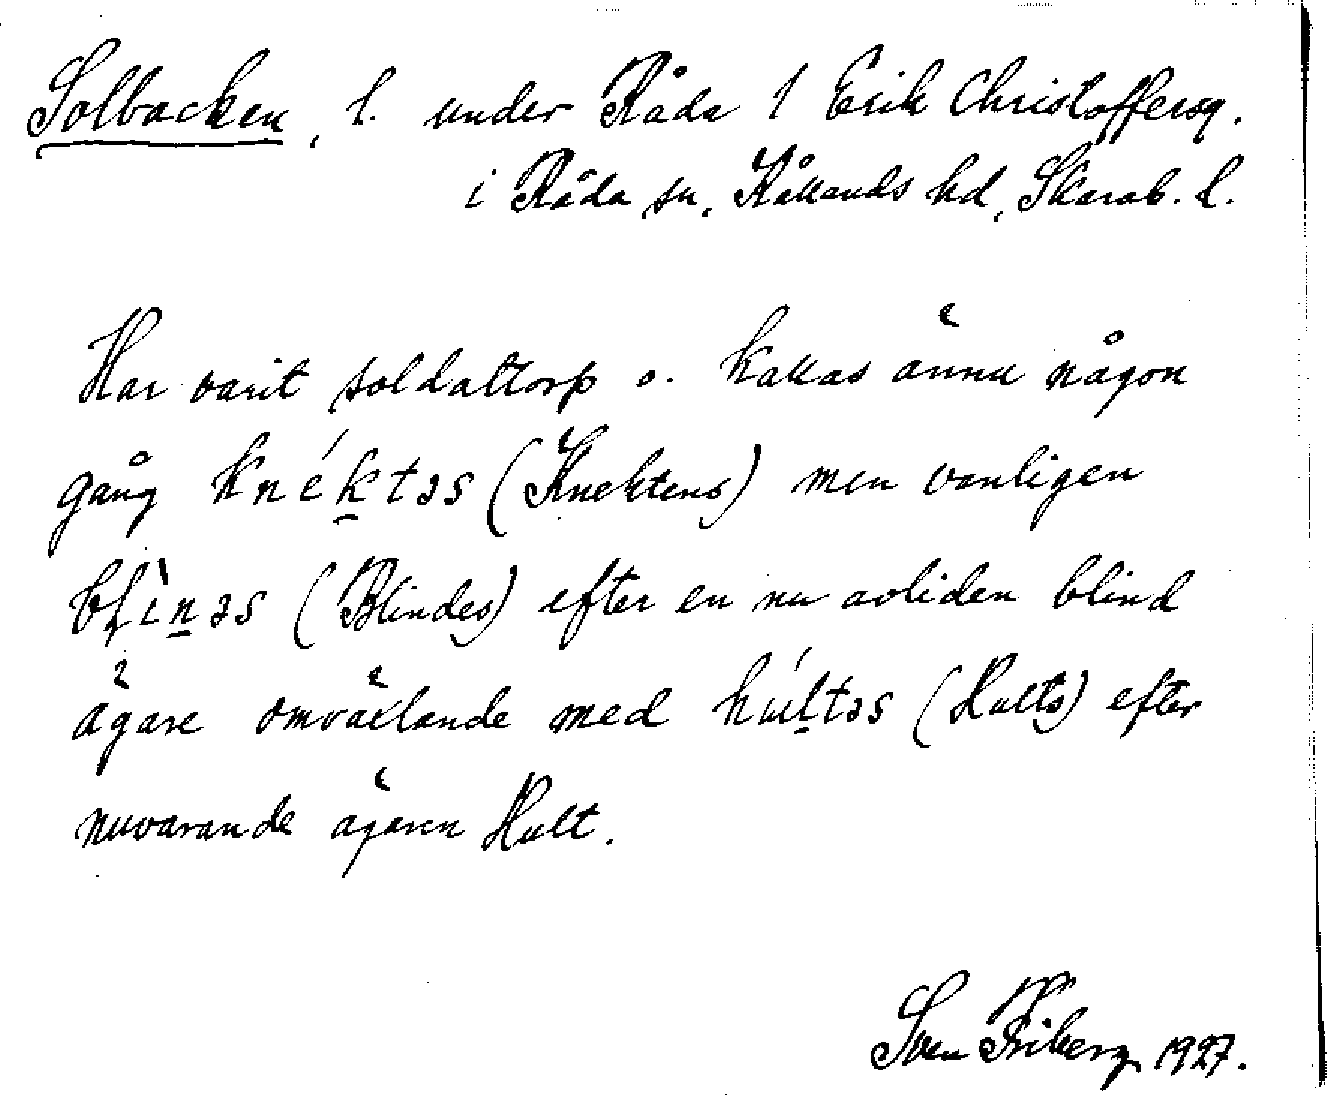 Solbacken, l. under Råda 1 Erik Christoffersg.
i Råda sn, Kållands hd, Skarab. l.
Har varit soldattorp o. kallas ännu någon
gång knéktəs (Knektens) men vanligen
bɽìnəs (Blindes) efter en nu avliden blind
ägare omväxlande med húltəs (Hults) efter
nuvarande ägaren Hult.
Sven Friberg 1927.